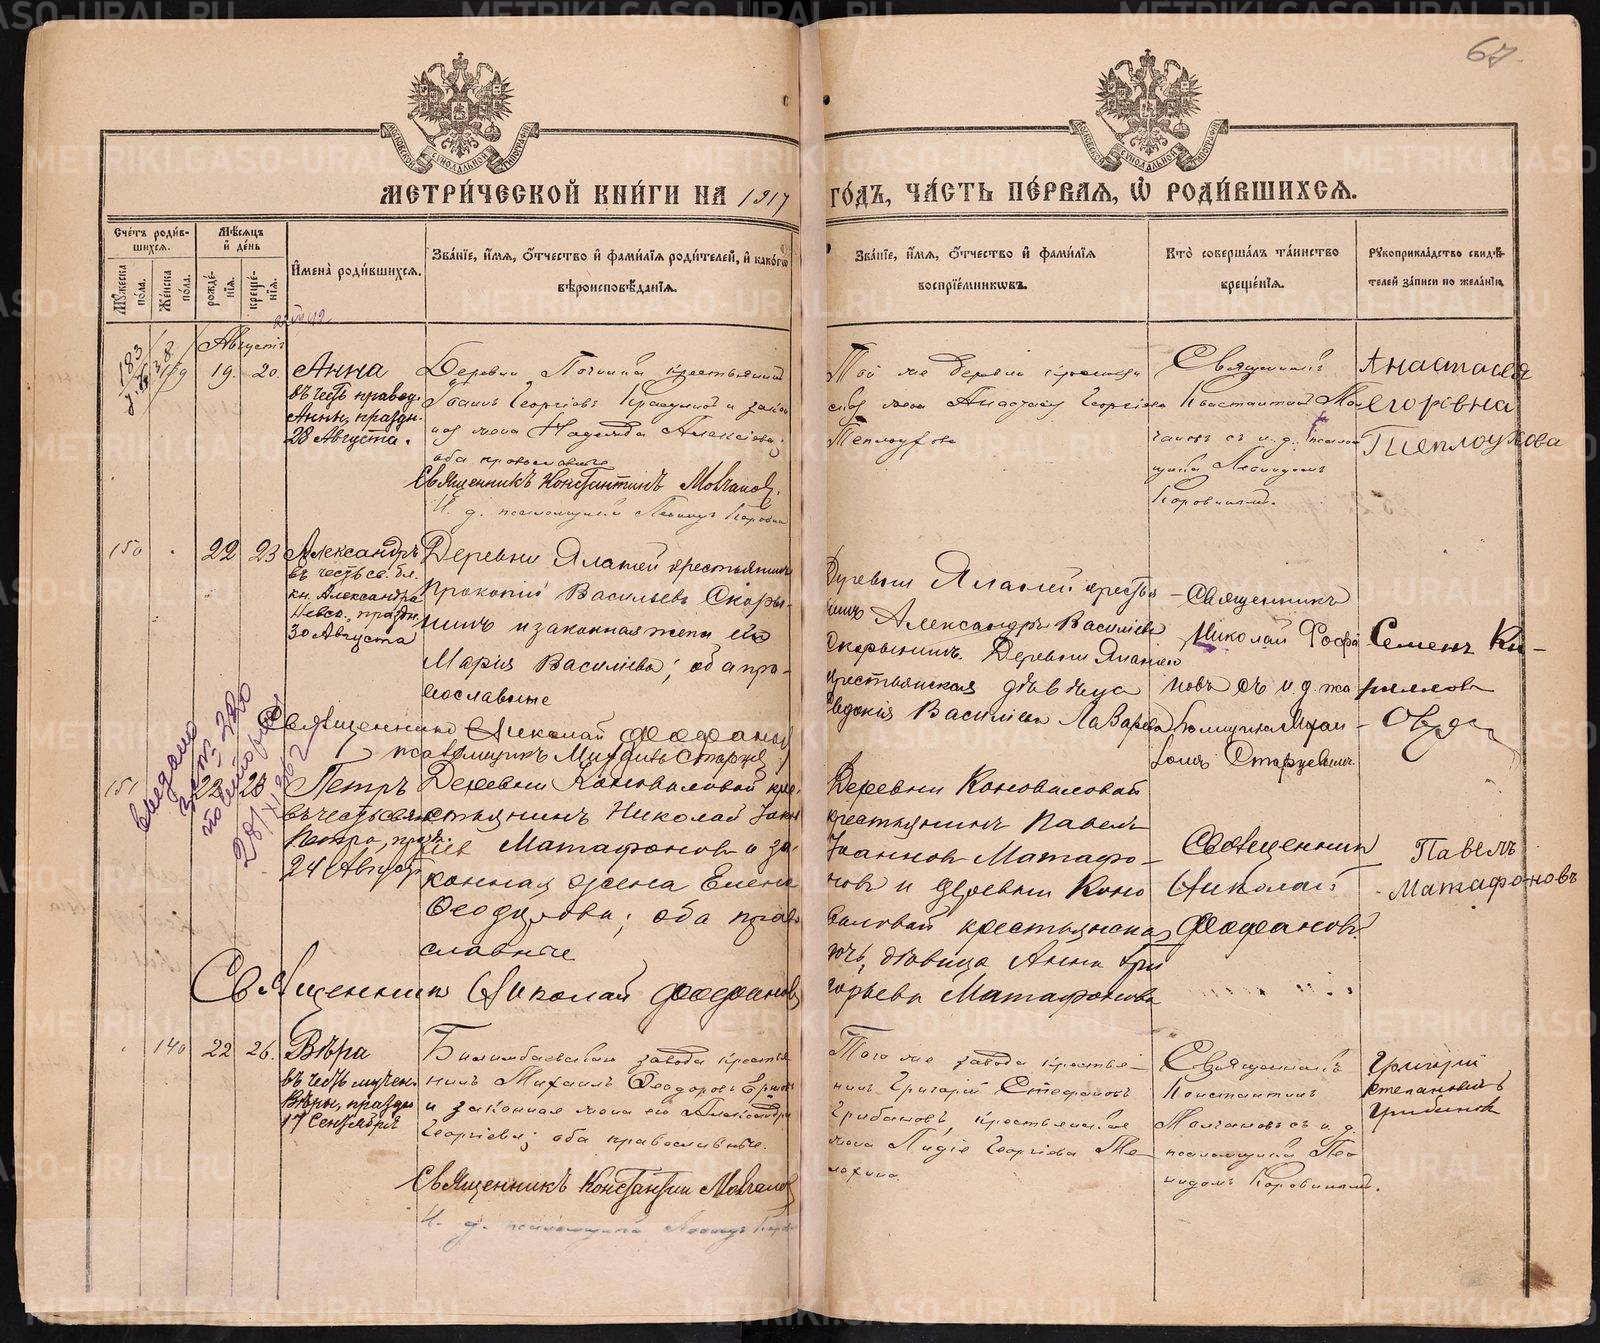 67
МЕТРИ́ЧЕСКОЙ КНИ́ГИ НА 1917
ГО́ДЪ, ЧА́СТЬ ПЕ́РВАЯ, Ѡ҆ РОДИ́ВШИХСЯ.
Сче́тъ роди́в-
шихся.
Му́жеска
по́ла.
Же́нска
по́ла.
Мѣ́сяцъ
и҆ де́нь
рожде́-
нія.
креще́-
нія.
И҆мена̀ роди́вшихся.
Зва́ніе, и҆́мя, ѻ҆́тчество и҆ фами́лія роди́телей, и҆ како́гѡ
вѣроисповѣ́данія.
Зва́ніе, и҆́мя, ѻ҆́тчество и҆ фами́лія
воспріе́мникѡвъ.
Кто̀ соверша́лъ та́инство
креще́нія.
Рꙋкоприкла́дство свидѣ́-
телей за́писи по жела́нію
Августъ
19. 20.
Анна
въ честь правед.
Анны, праздн.
28 Августа.
Деревни Починка крестьянинъ
Іоаннъ Георгіевъ
жена Надежда Алексіева;
оба православные
Священникъ Константинъ Молчановъ.
И. д. псаломщика Леонидъ Коровинъ
Той же деревни
жена Анастасія Георгіева
Теплоухова
Священникъ
Константинъ Мол-
чановъ съ и. д. псалом-
щика Леонидомъ
Коровинымъ.
Анастасія
Егоровна
Теплоухова
150 22 23
Александръ
въ честь св. бл.
кн. Александра
Невск., праздн.
30 Августа
Деревни Яламей крестьянинъ
Прокопій Васильевъ Скоры-
нинъ и законная жена его
Марія Васильева; оба пра-
вославные
Священникъ Николай Феофановъ
псаломщикъ Михаилъ Старцевъ
Деревни Яламей кресть-
янинъ Александръ Васильевъ
Скорынинъ. Деревни Яламей
крестьянская дѣвица
Евдокія Васильева Лазарева
Священникъ
Николай Феофа-
новъ съ и. д. пса-
ломщика Михаи-
ломъ Старцевымъ.
Семенъ Ки-
рилловъ
151 22 23
Петръ
въ честь святит.
Петра, праздн.
24 Августа
Деревни Коноваловой кре-
стьянинъ Николай Іоанн-
овъ Матафоновъ и за-
конная жена Елена
Ѳеодулова; оба право-
славные
Священникъ Николай Феофановъ
Деревни Коноваловой
крестьянинъ Павелъ
Іоанновъ Матафо-
новъ и деревни Коно-
валовой крестьянская
дочь, дѣвица Анна Гри-
горьева Матафонова
Священникъ
Николай
Феофановъ.
Павелъ
Матафоновъ
Выдано
повторное
28/XI 1962
140 22 26.
Вѣра
въ честь мучен.
Вѣры, праздн.
17 Сентября
Билимбаевскаго завода крестья-
нинъ Михаилъ Ѳеодоровъ Ершовъ
и законная жена его Александра
Георгіева; оба православные.
Священникъ Константинъ Молчановъ
И. д. псаломщика Леонидъ Коровинъ
Того же завода крестья-
нинъ Григорій Стефановъ
Грибановъ, крестьянская
жена Лидія Георгіева Ме-
лехина.
Священникъ
Константинъ
Молчановъ съ и. д.
псаломщика Лео-
нидомъ Коровинымъ.
Григорій
Степановичъ
Грибановъ
METRIKI.GASO-URAL.RU